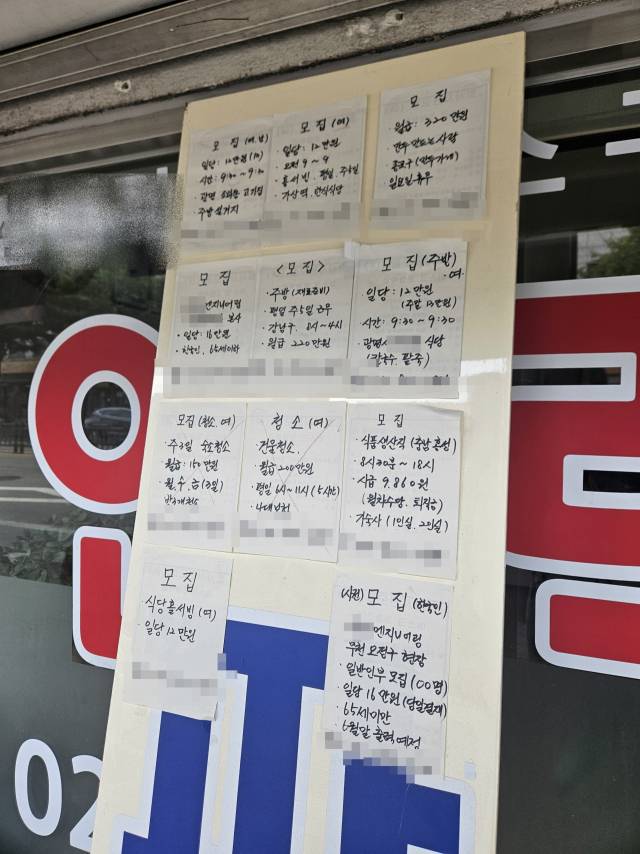 모 집 (여, 남)
일당: 12만원
시간: 9:30 ~ 9:30
고기집
주방 설거지
모 집 (여)
일당: 12만원
오전 9 ~ 9
홀서빙, 평일, 주5일
가산역, 한식식당
모 집
월급: 320만원
만두 만드는 사람
종로구 (만두가게)
일요일 휴무
모 집
엔지니어링
본사
일당: 16만원
한국인, 65세이하
<모 집>
주방 (재료준비)
평일 주5일 근무
강남구, 8시~4시
월급 220만원
모 집 (주방) 여
일당: 12만원
(주말 13만원)
시간: 9:30 ~ 9:30
광명시 식당
(칼국수, 팥죽)
모집 (청소, 여)
주3일 숙소청소
월급: 150만원
월, 수, 금 (3일)
청 소 (여)
건물청소,
월급 200만원
평일 6시~11시 (5시간)
4대보험
모 집
식품생산직 (충남 홍성)
8시30분 ~ 18시
시급 9,860원
(월차수당, 퇴직금)
기숙사 (1인실, 2인실)
모 집
식당홀서빙 (여)
일당 12만원
모 집 (한국인)
엔지니어링
부천 오정구 현장
일반인부 모집 (00명)
일당 16만원 (당일결제)
65세미만
6월말 출력예정
02